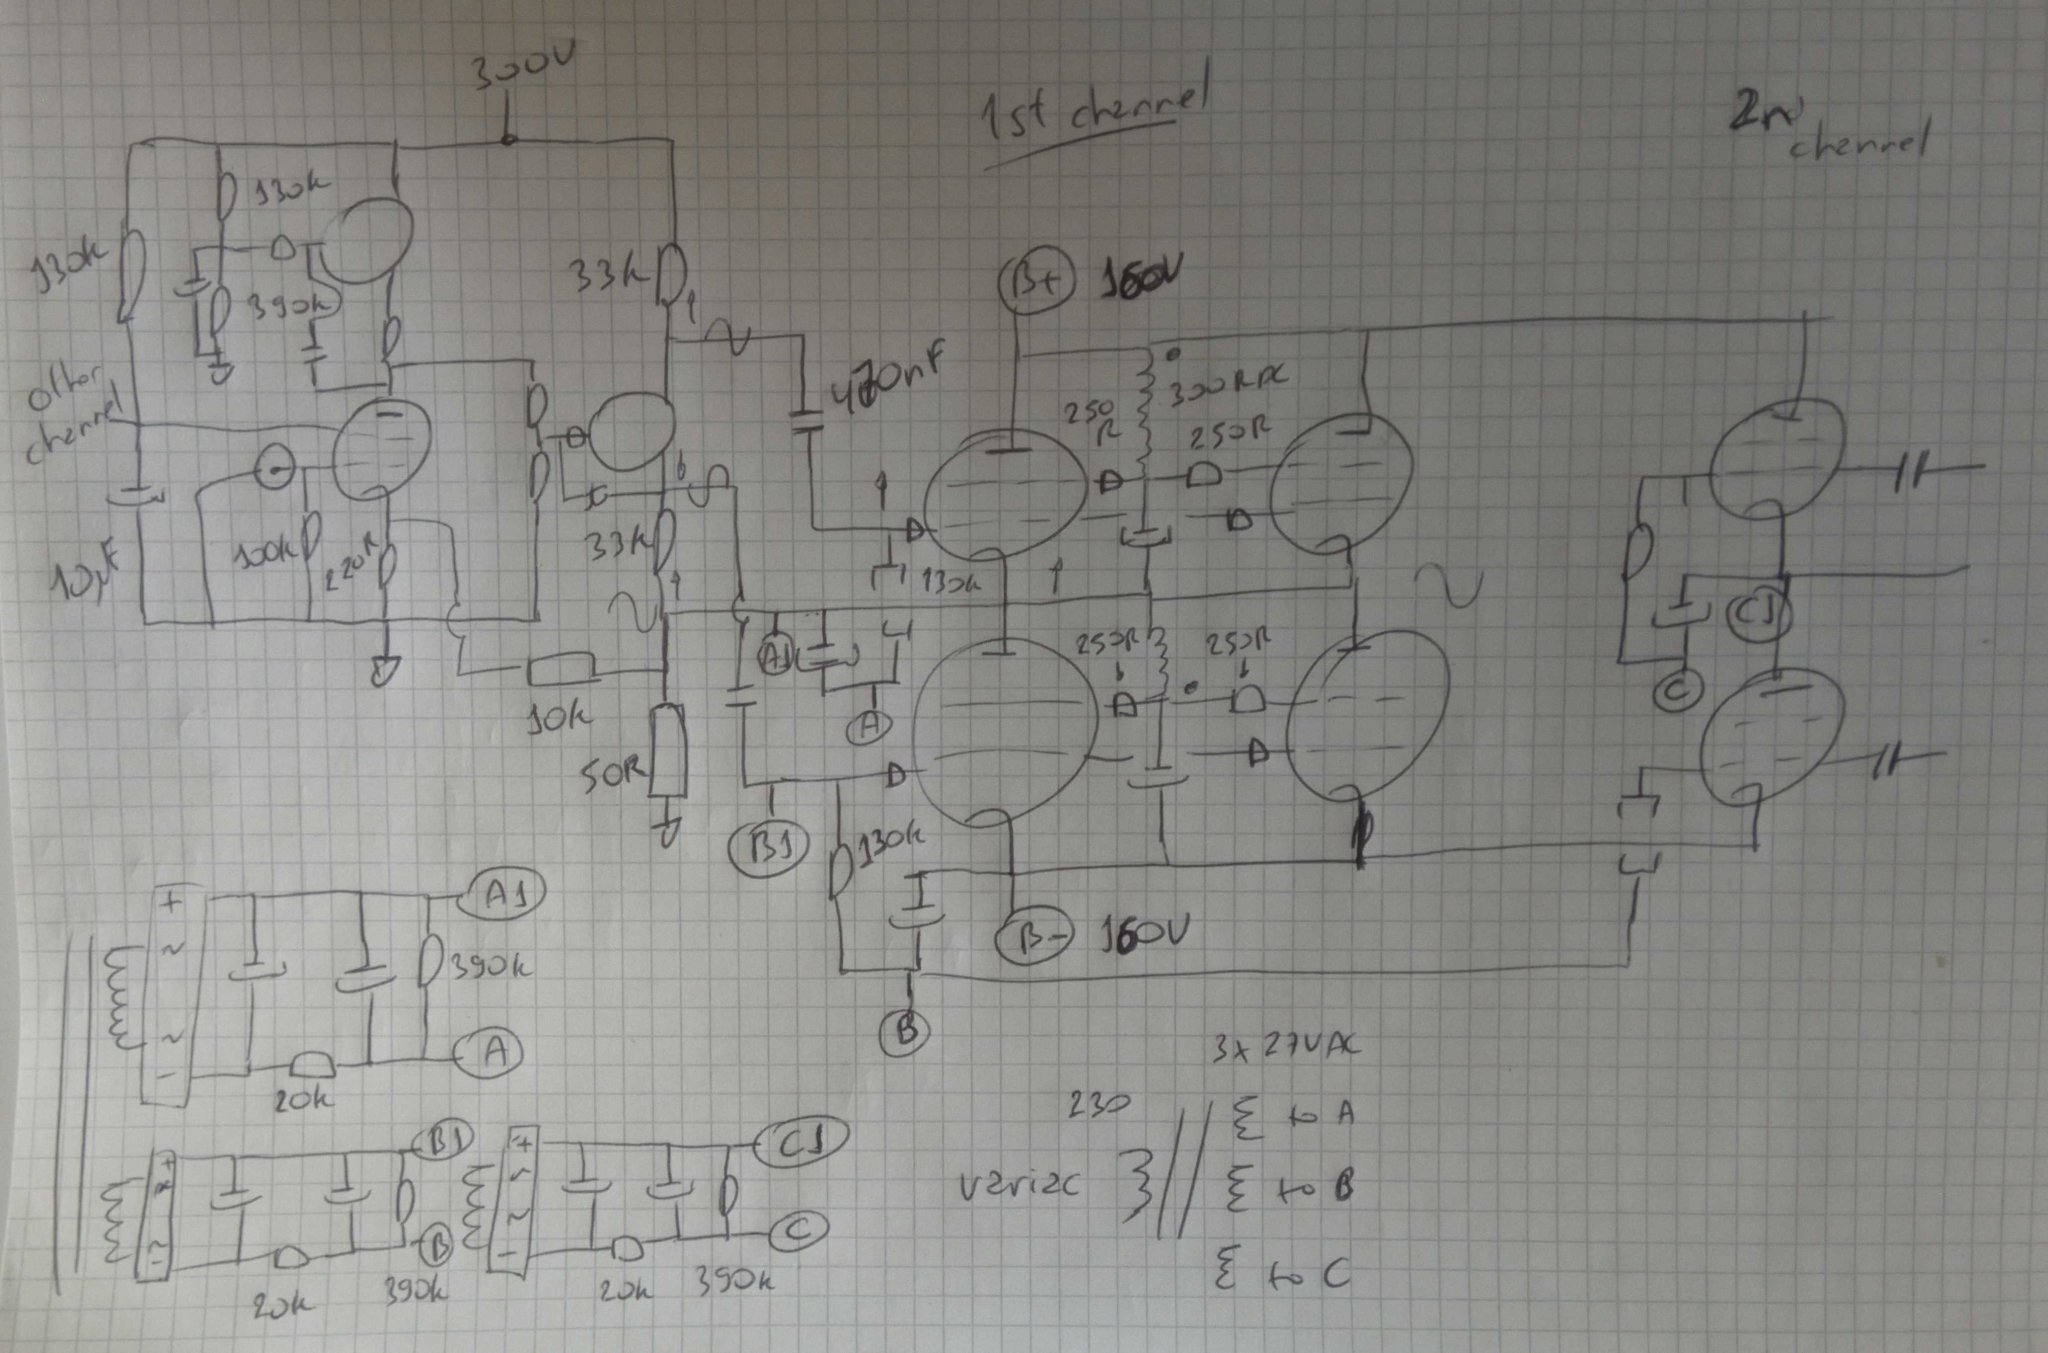 300V
1st channel
2n
channel
130k
130k
390k
33k
B+ 160V
other
channel
470nF
250
R
300RDC
250R
10µF
100k
220R
33k
130k
A1
A
250R
250R
C1
C
10k
50R
B1
130k
B- 160V
B
+
~
~
-
A1
390k
A
20k
B1
B
20k
390k
+
~
~
-
C1
C
20k
390k
3x 27VAC
230
variac
to A
to B
to C